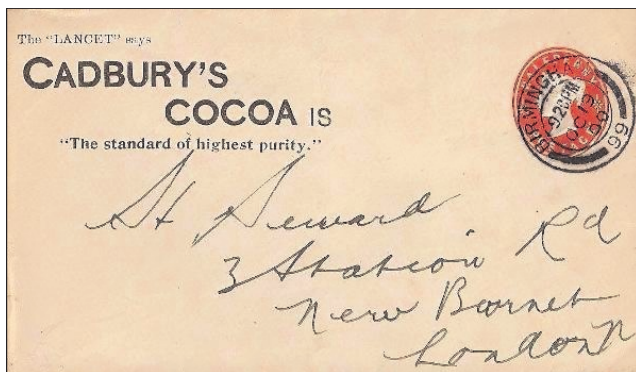 The "LANCET" says
CADBURY'S
COCOA IS
"The standard of highest purity."
BIRMINGHAM
9 28 PM
OC 19
99
St Seward
3 Station Rd
New Barnet
London N